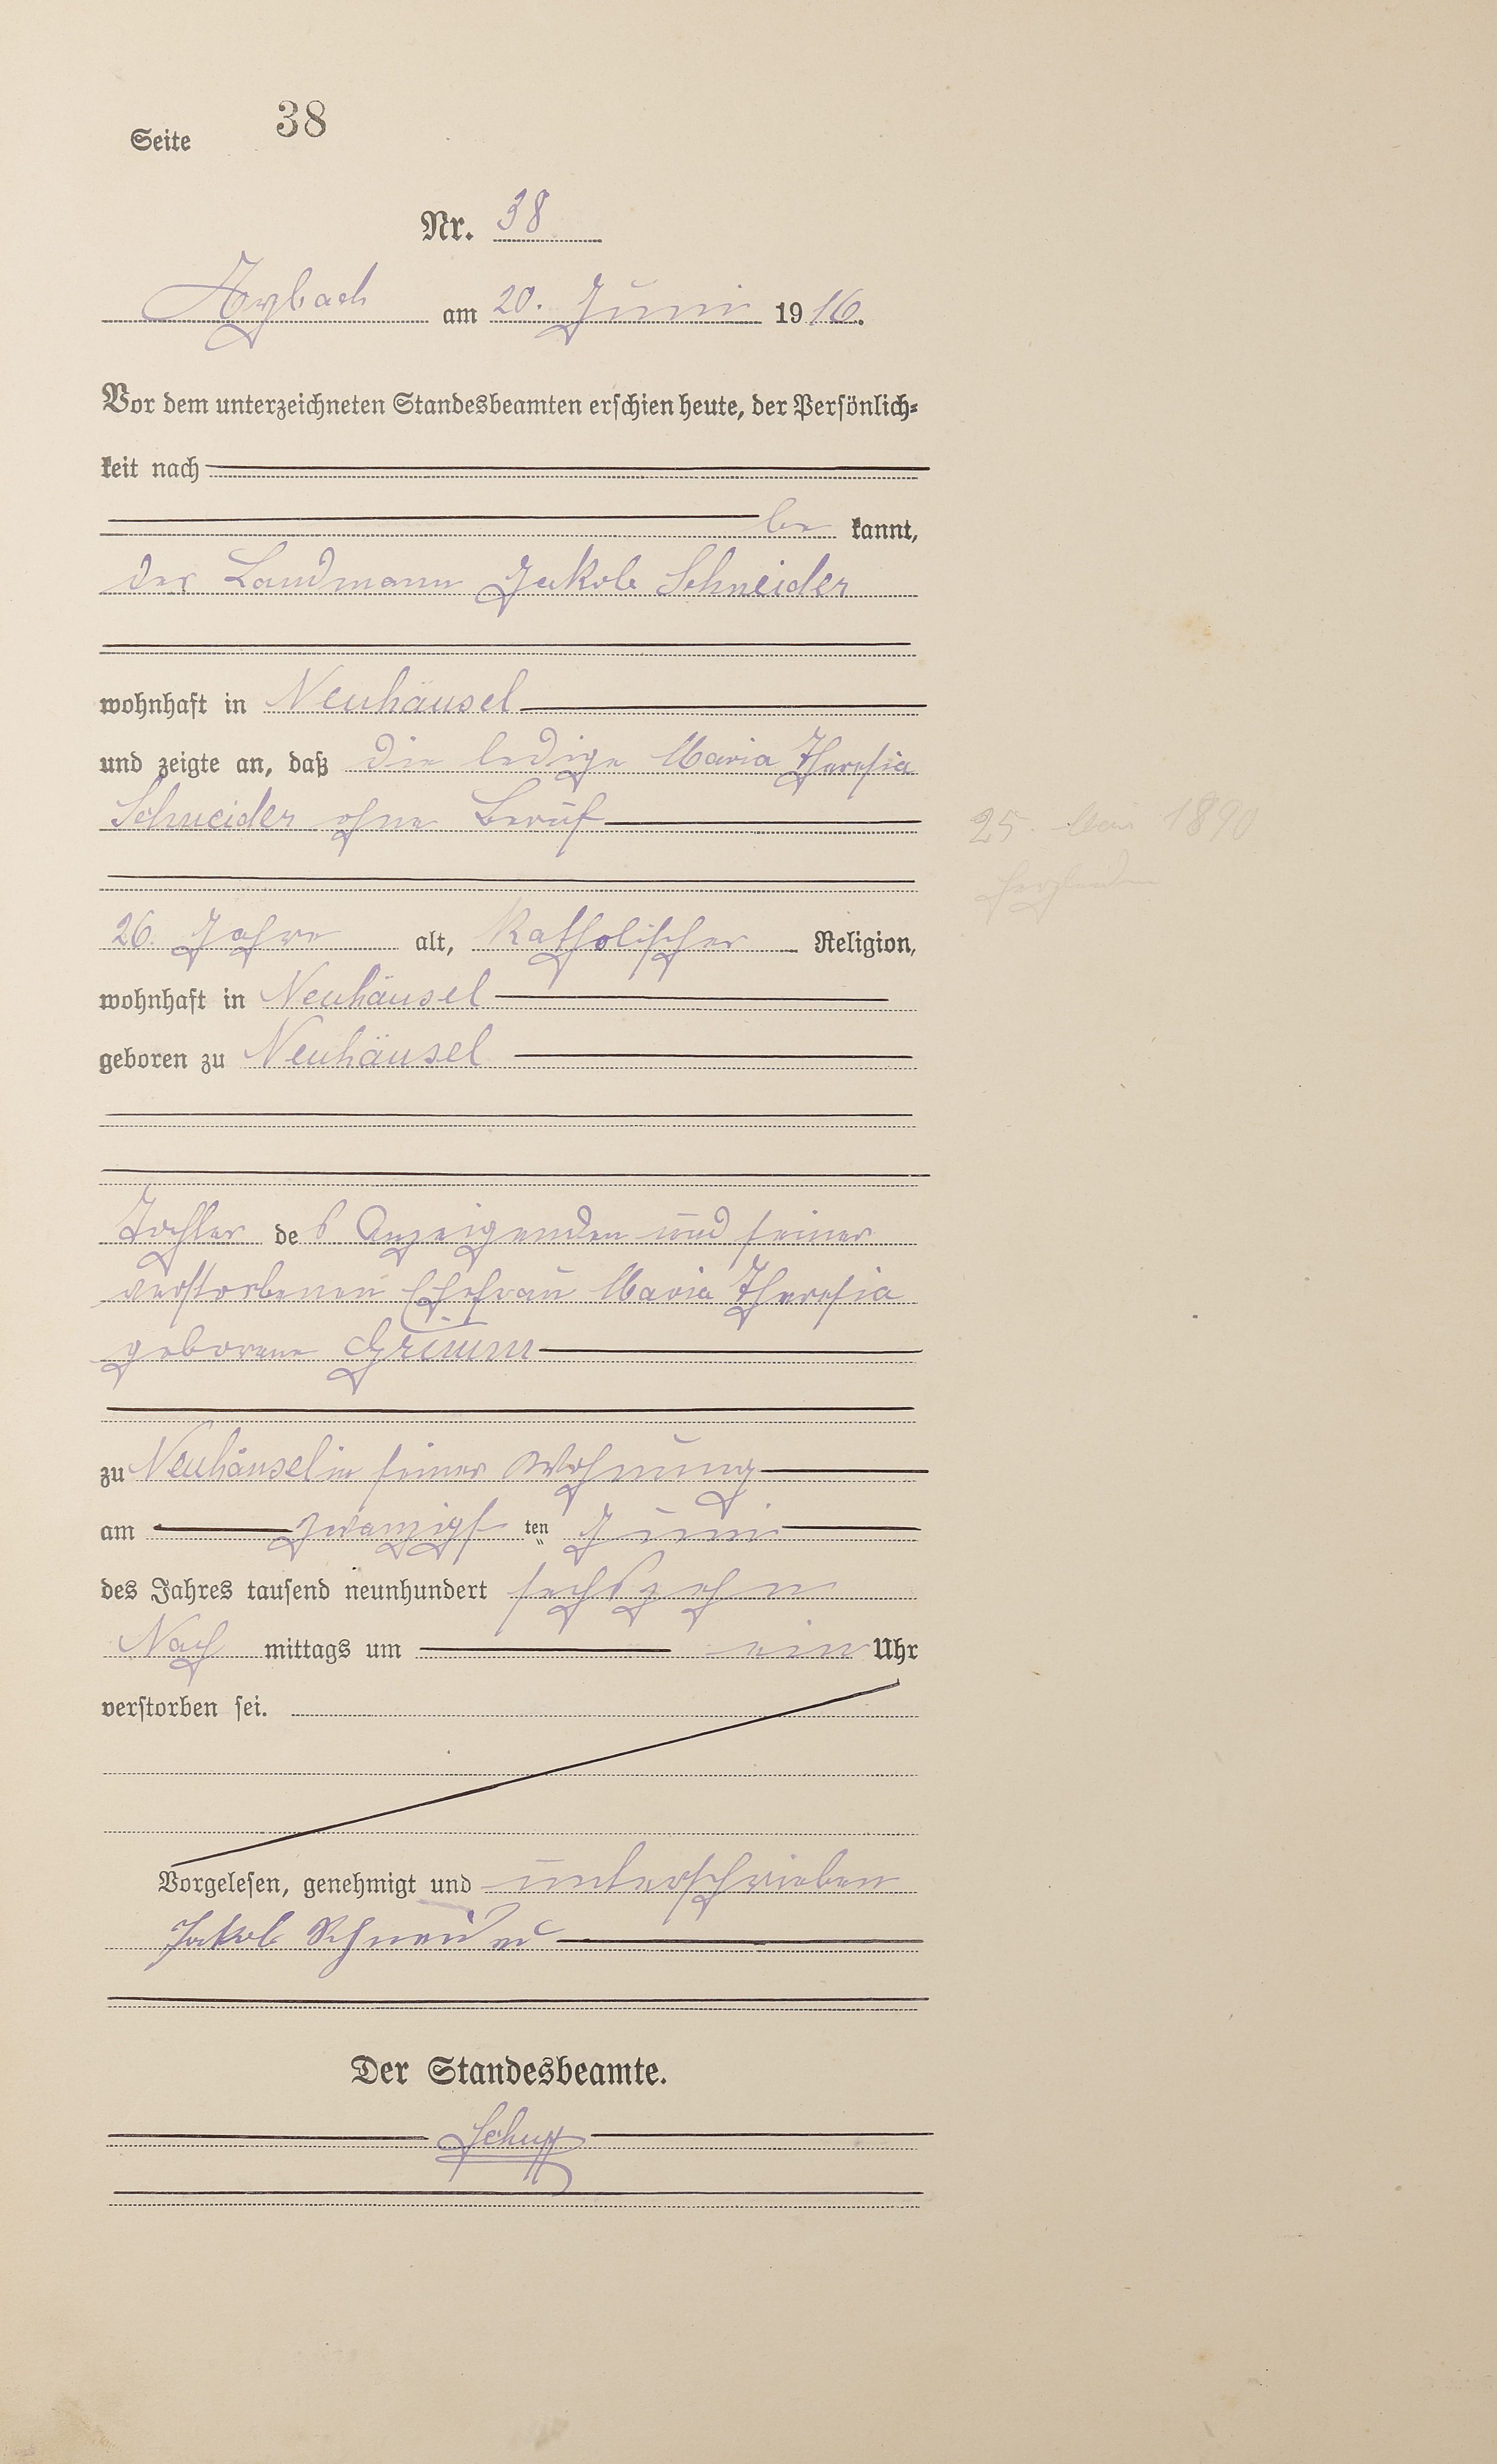 Seite 38
Nr. 38
Arzbach am 20. Juni 1916.
Vor dem unterzeichneten Standesbeamten erschien heute, der Persönlich-
keit nach
be kannt,
der Landmann Jakob Schneider
wohnhaft in Neuhäusel
und zeigte an, daß die ledige Maria Theresia
Schneider ohne Beruf
25. Mai 1890
Herzleiden
26 Jahre alt, katholischer Religion,
wohnhaft in Neuhäusel
geboren zu Neuhäusel
Tochter des Anzeigenden und seiner
verstorbenen Ehefrau Maria Theresia
geborene Grimm
zu Neuhäusel in seiner Wohnung
am zwanzigsten Juni
des Jahres tausend neunhundert sechszehn
Nach mittags um ein Uhr
verstorben sei.
Vorgelesen, genehmigt und unterschrieben
Jakob Schneider
Der Standesbeamte.
Schupp